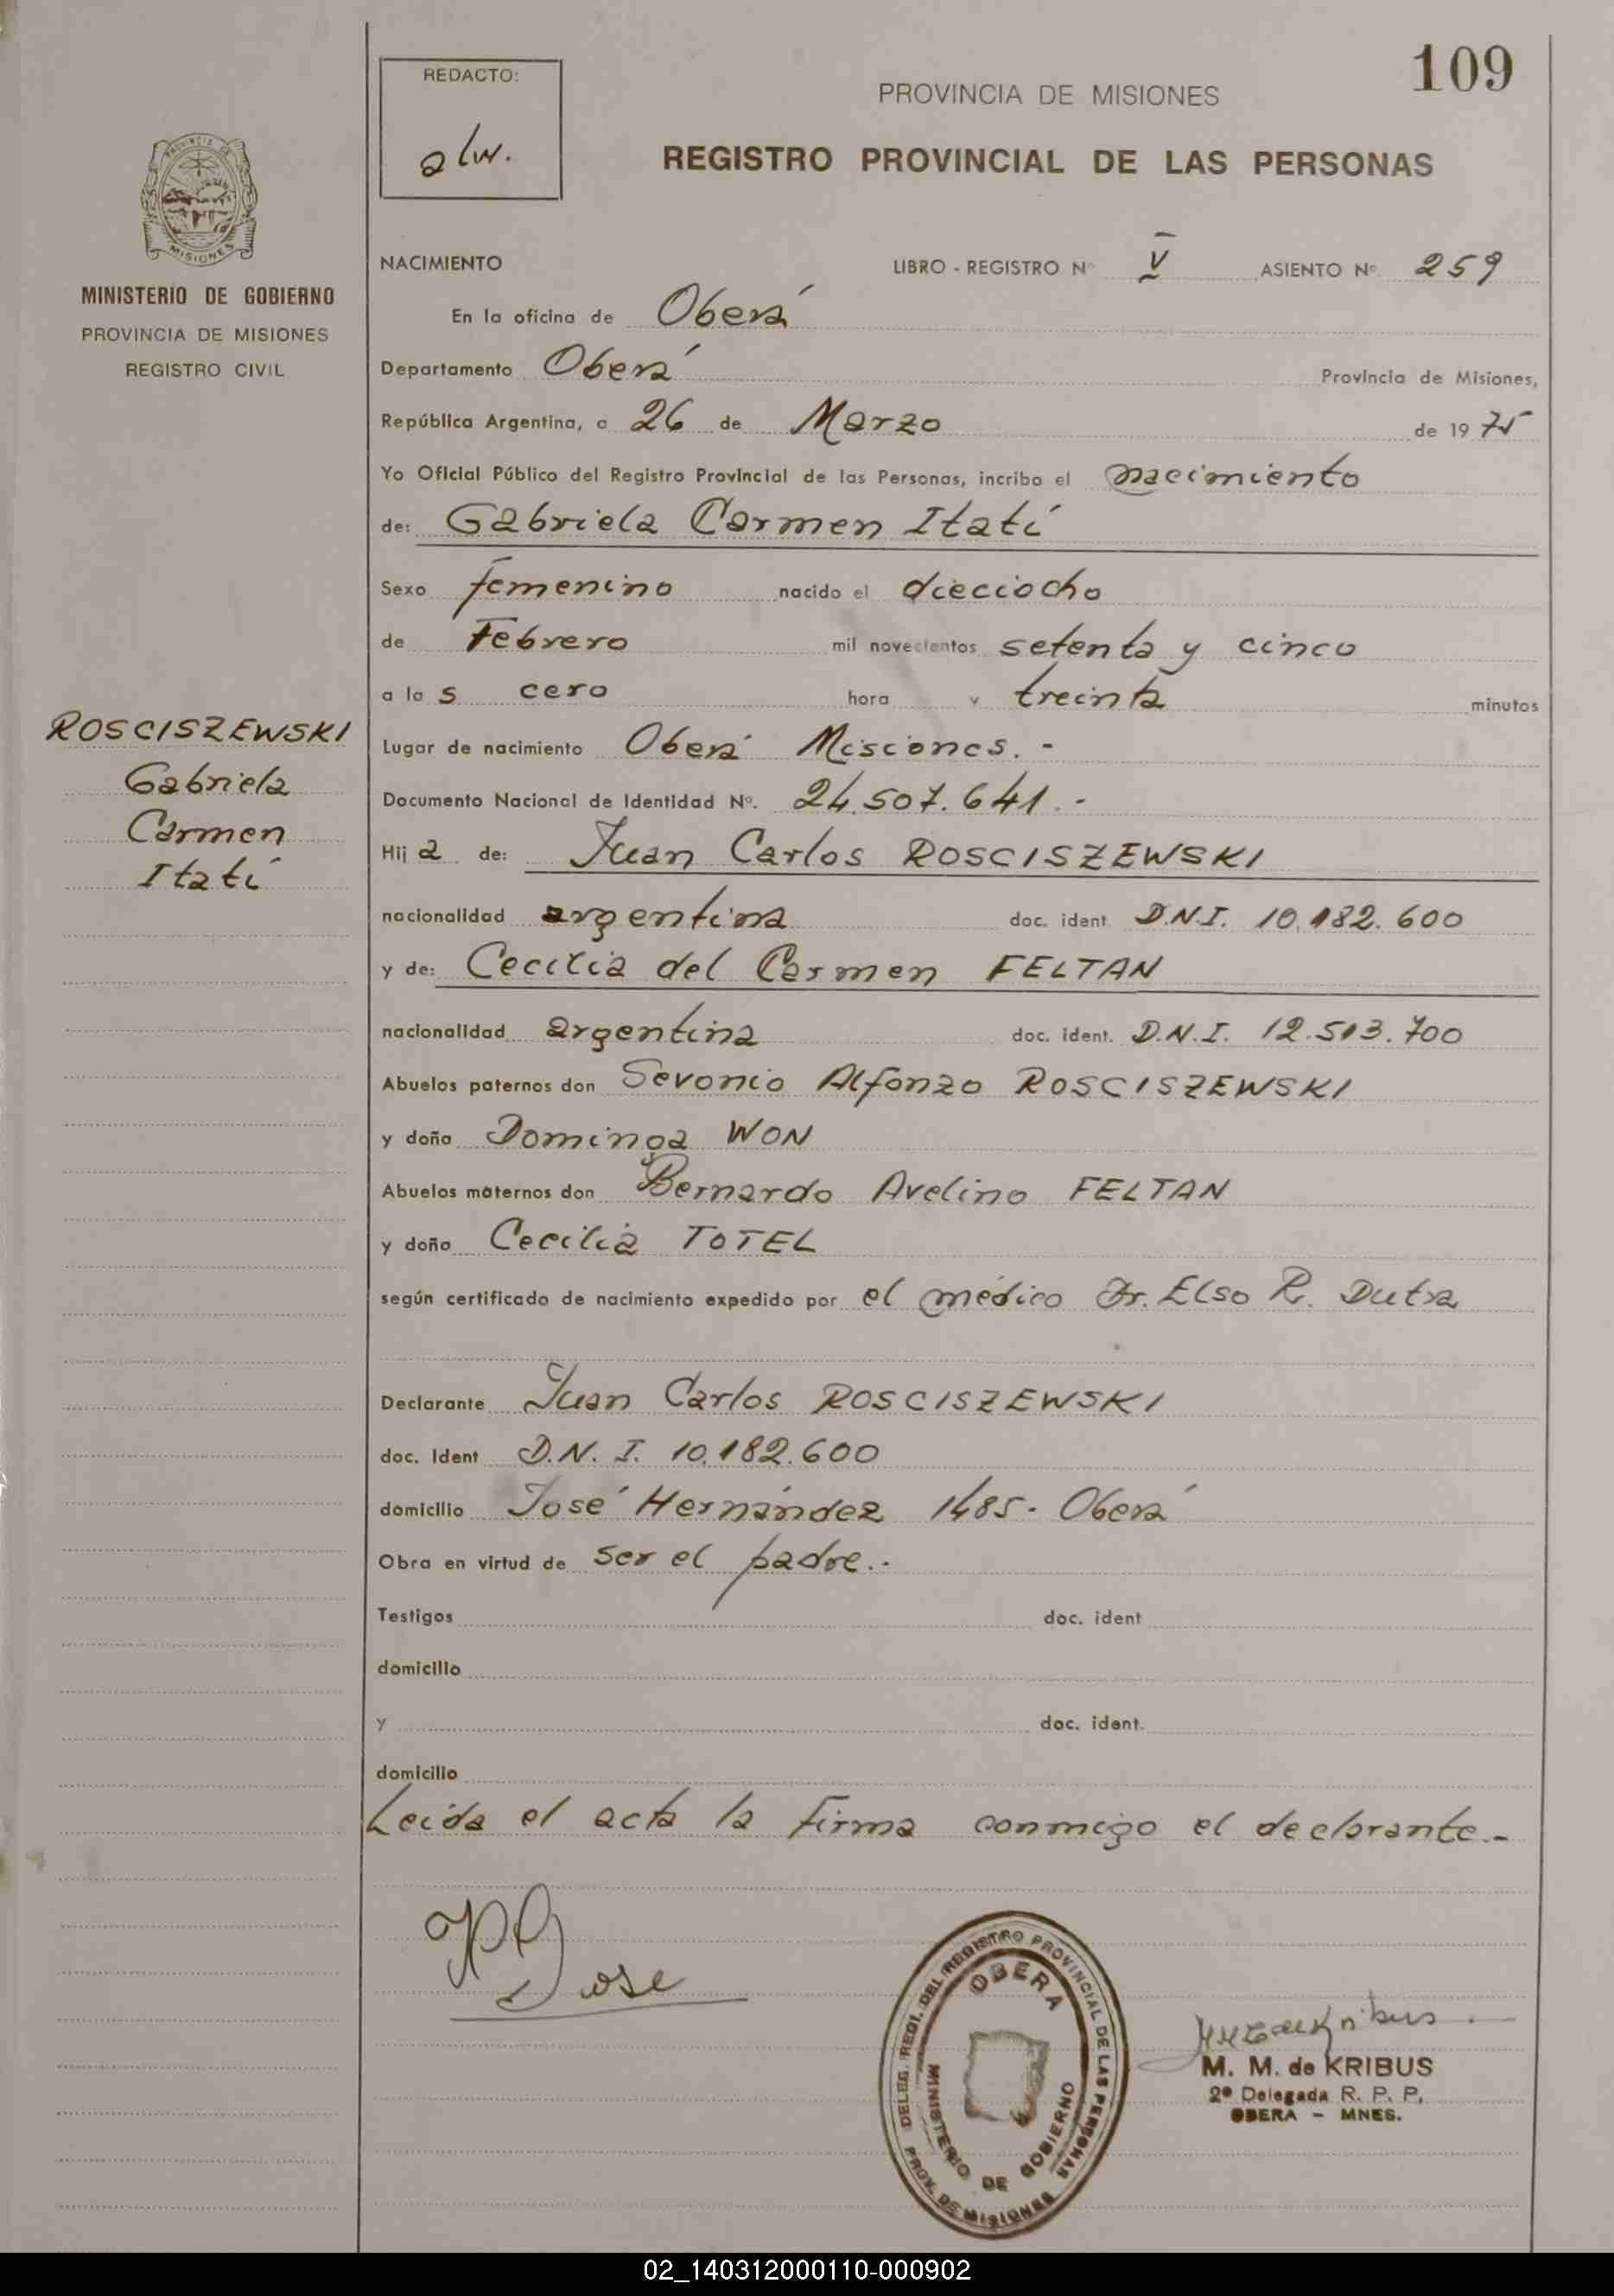 109
REDACTO:
alw.
PROVINCIA DE MISIONES
REGISTRO PROVINCIAL DE LAS PERSONAS
PROVINCIA DE
MISIONES
MINISTERIO DE GOBIERNO
PROVINCIA DE MISIONES
REGISTRO CIVIL
NACIMIENTO LIBRO - REGISTRO Nº V ASIENTO Nº 259
En la oficina de Oberá
Departamento Oberá Provincia de Misiones,
República Argentina, a 26 de Marzo de 1975
Yo Oficial Público del Registro Provincial de las Personas, incribo el nacimiento
de: Gabriela Carmen Itatí
Sexo femenino nacido el dieciocho
de Febrero mil novecientos setenta y cinco
a las cero hora y treinta minutos
Lugar de nacimiento Oberá Misiones. -
Documento Nacional de Identidad Nº. 24.507.641. -
Hija de: Juan Carlos ROSCISZEWSKI
nacionalidad argentina doc. ident. D.N.I. 10.182.600
y de: Cecilia del Carmen FELTAN
nacionalidad argentina doc. ident. D.N.I. 12.513.700
Abuelos paternos don Sevonio Alfonzo ROSCISZEWSKI
y doña Dominga WON
Abuelos maternos don Bernardo Avelino FELTAN
y doña Cecilia TOTEL
según certificado de nacimiento expedido por el médico Dr. Elso R. Dutra
Declarante Juan Carlos ROSCISZEWSKI
doc. Ident D.N.I. 10.182.600
domicilio José Hernández 1485- Oberá
Obra en virtud de ser el padre.-
Testigos doc. ident
domicilio
y doc. ident.
domicilio
Leida el acta la firma conmigo el declarante.-
ROSCISZEWSKI
Gabriela
Carmen
Itatí
DELEG. REGI. DEL REGISTRO PROVINCIAL DE LAS PERSONAS
PROV. DE MISIONES
OBERA
MINISTERIO DE GOBIERNO
M. M. de KRIBUS
2ª Delegada R. P. P.
OBERA - MNES.
02_140312000110-000902